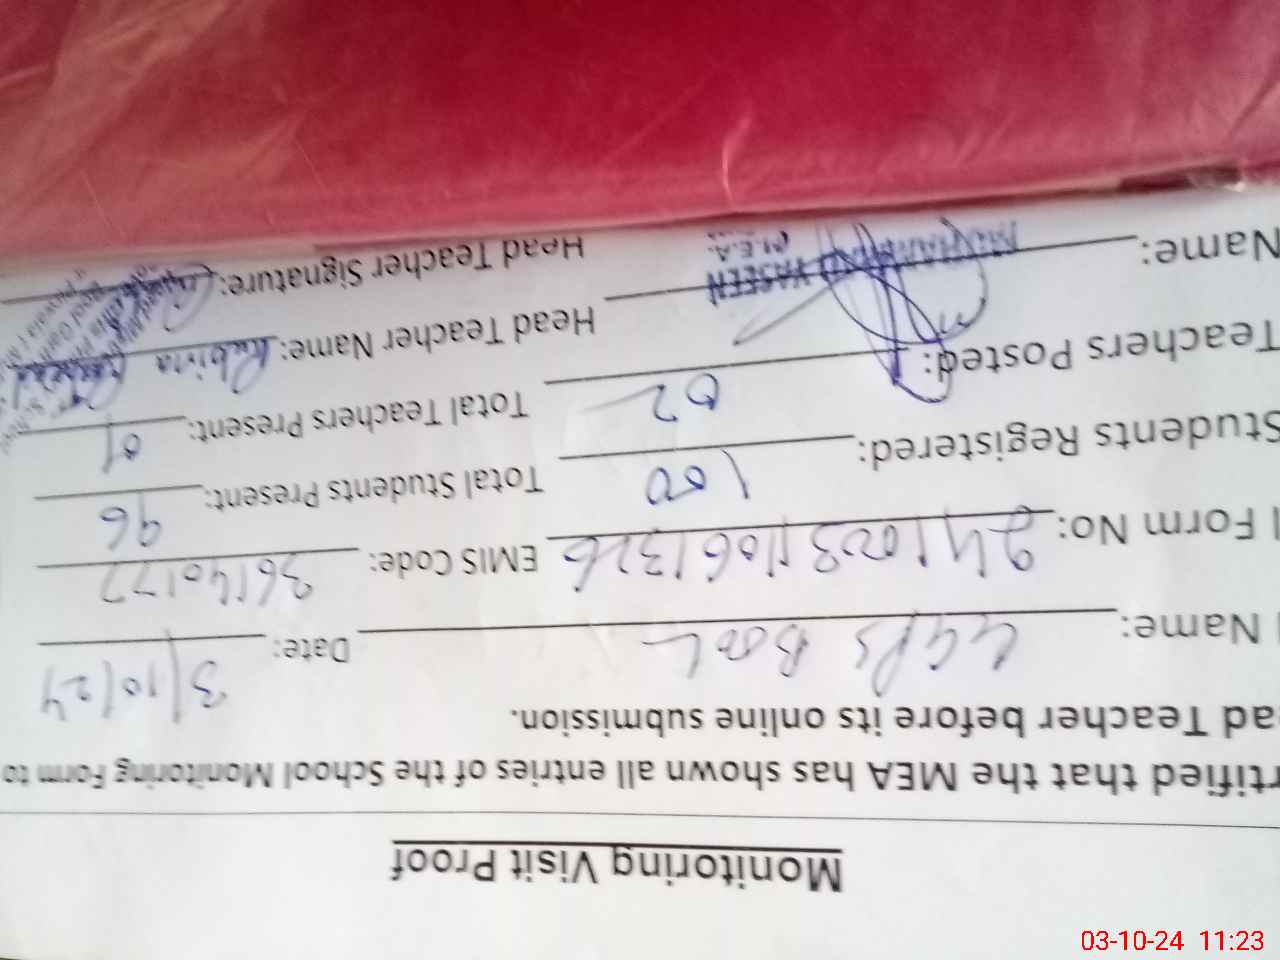 Monitoring Visit Proof
rtified that the MEA has shown all entries of the School Monitoring Form to
ad Teacher before its online submission.
l Name: GGPS Date: 3/10/24
l Form No: EMIS Code: 36140177
Students Registered: 100 Total Students Present: 96
Teachers Posted: 02 Total Teachers Present: 01
Name: MUHAMMAD YASEEN M.E.A. Head Teacher Name: Rubina
Head Teacher Signature:
03-10-24 11:23